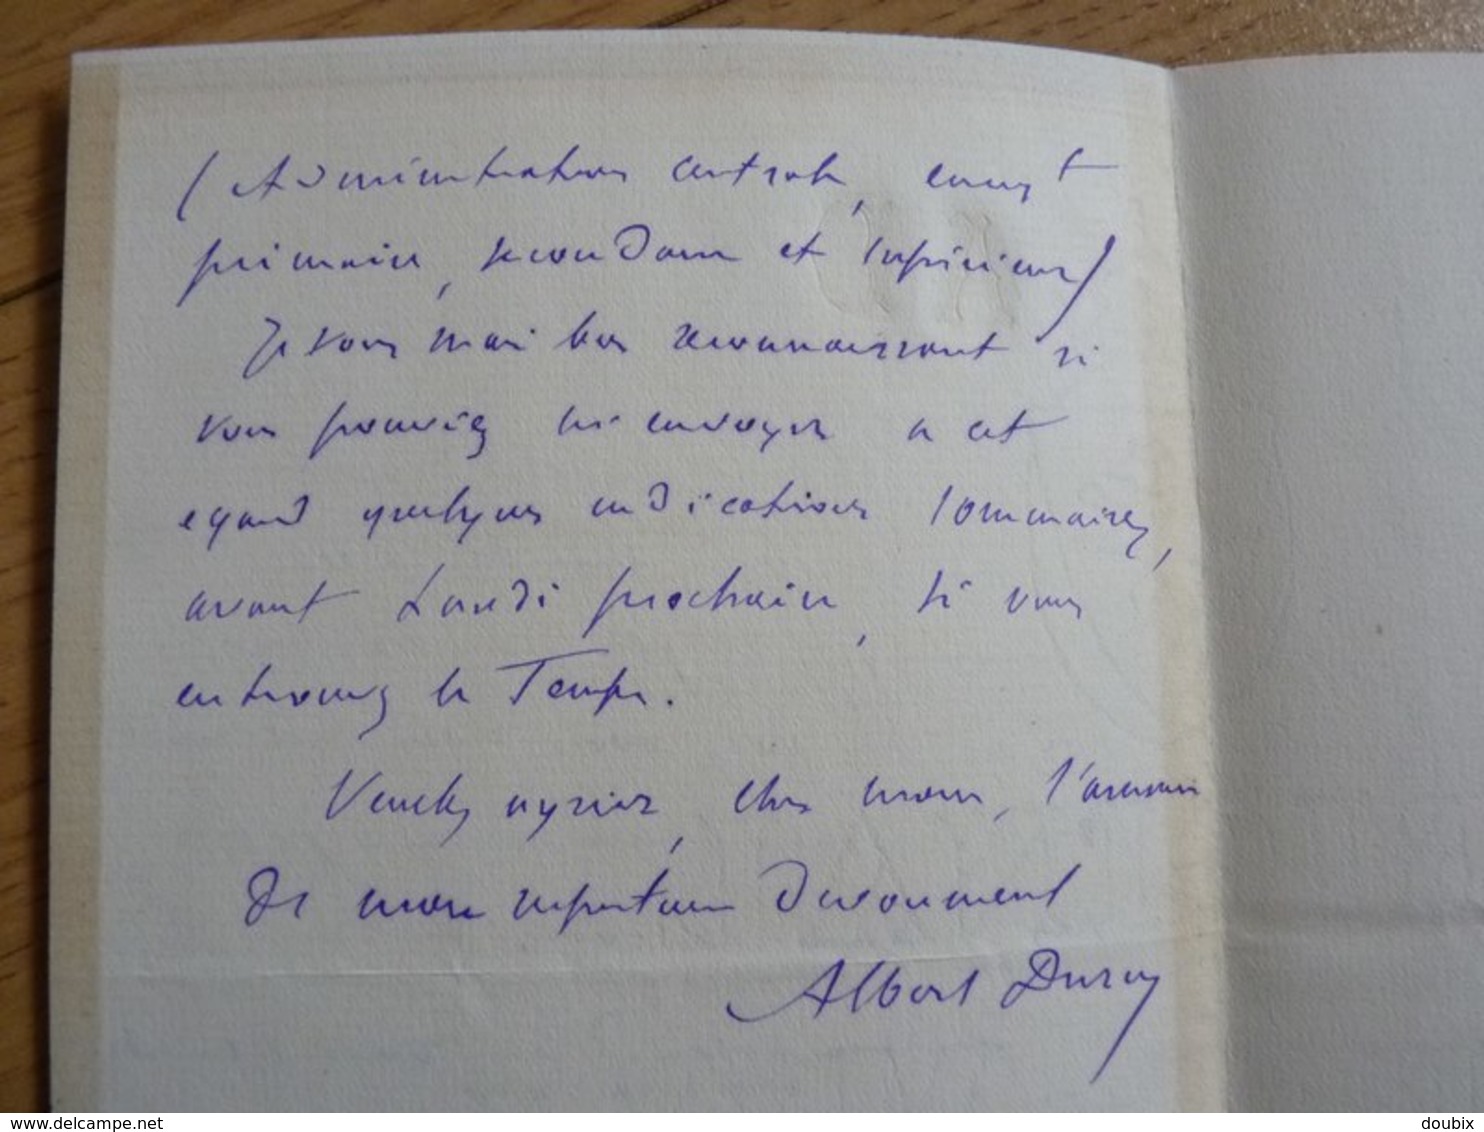 (Administration centrale, enseigt
primaire, secondaire et supérieur)
Je vous serai bien reconnaissant si
vous pouviez m'envoyer à cet
égard quelques indications sommaires,
avant Lundi prochain, si vous
en trouvez le Temps.
Veuillez agréer, cher, l'assurance
de mon respectueux dévouement
Albert Duruy
www.delcampe.net
doubix